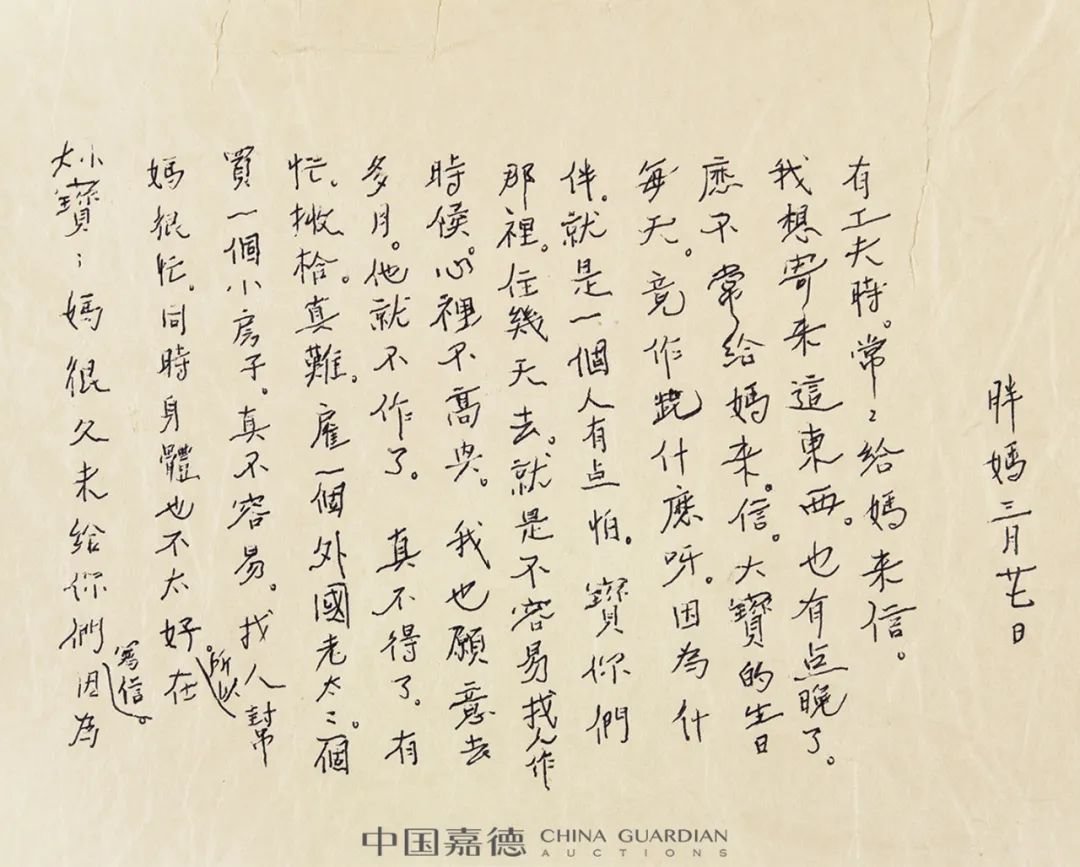 大小寶；媽很久未給你們寫信。因為
媽很忙。同時身體也不太好。所以在
買一個小房子。真不容易。找人幫
忙。收拾。真難。雇一個外國老太〻。一個
多月。他就不作了。真不得了。有
時候。心裡不高興。我也願意去
那裡。住幾天去。就是不容易找人作
伴。就是一個人有点怕。寶你們
每天。竟作些什麽呀。因為什
麽不常給媽来信。大寶的生日
我想寄来這東西。也有点晚了。
有工夫時。常〻給媽来信。
胖媽三月廿七日
中国嘉德 CHINA GUARDIAN
AUCTIONS